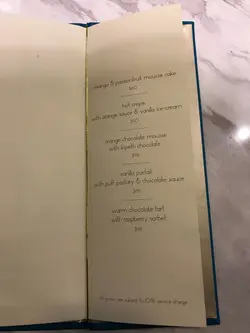 mango & passionfruit mousse cake
hot crepe
with orange sauce & vanilla ice-cream
orange chocolate mousse
with kipelti chocolate
vanilla parfait
with puff pastry & chocolate sauce
warm chocolate tart
with raspberry sorbet
All prices are subject to 10% service charge